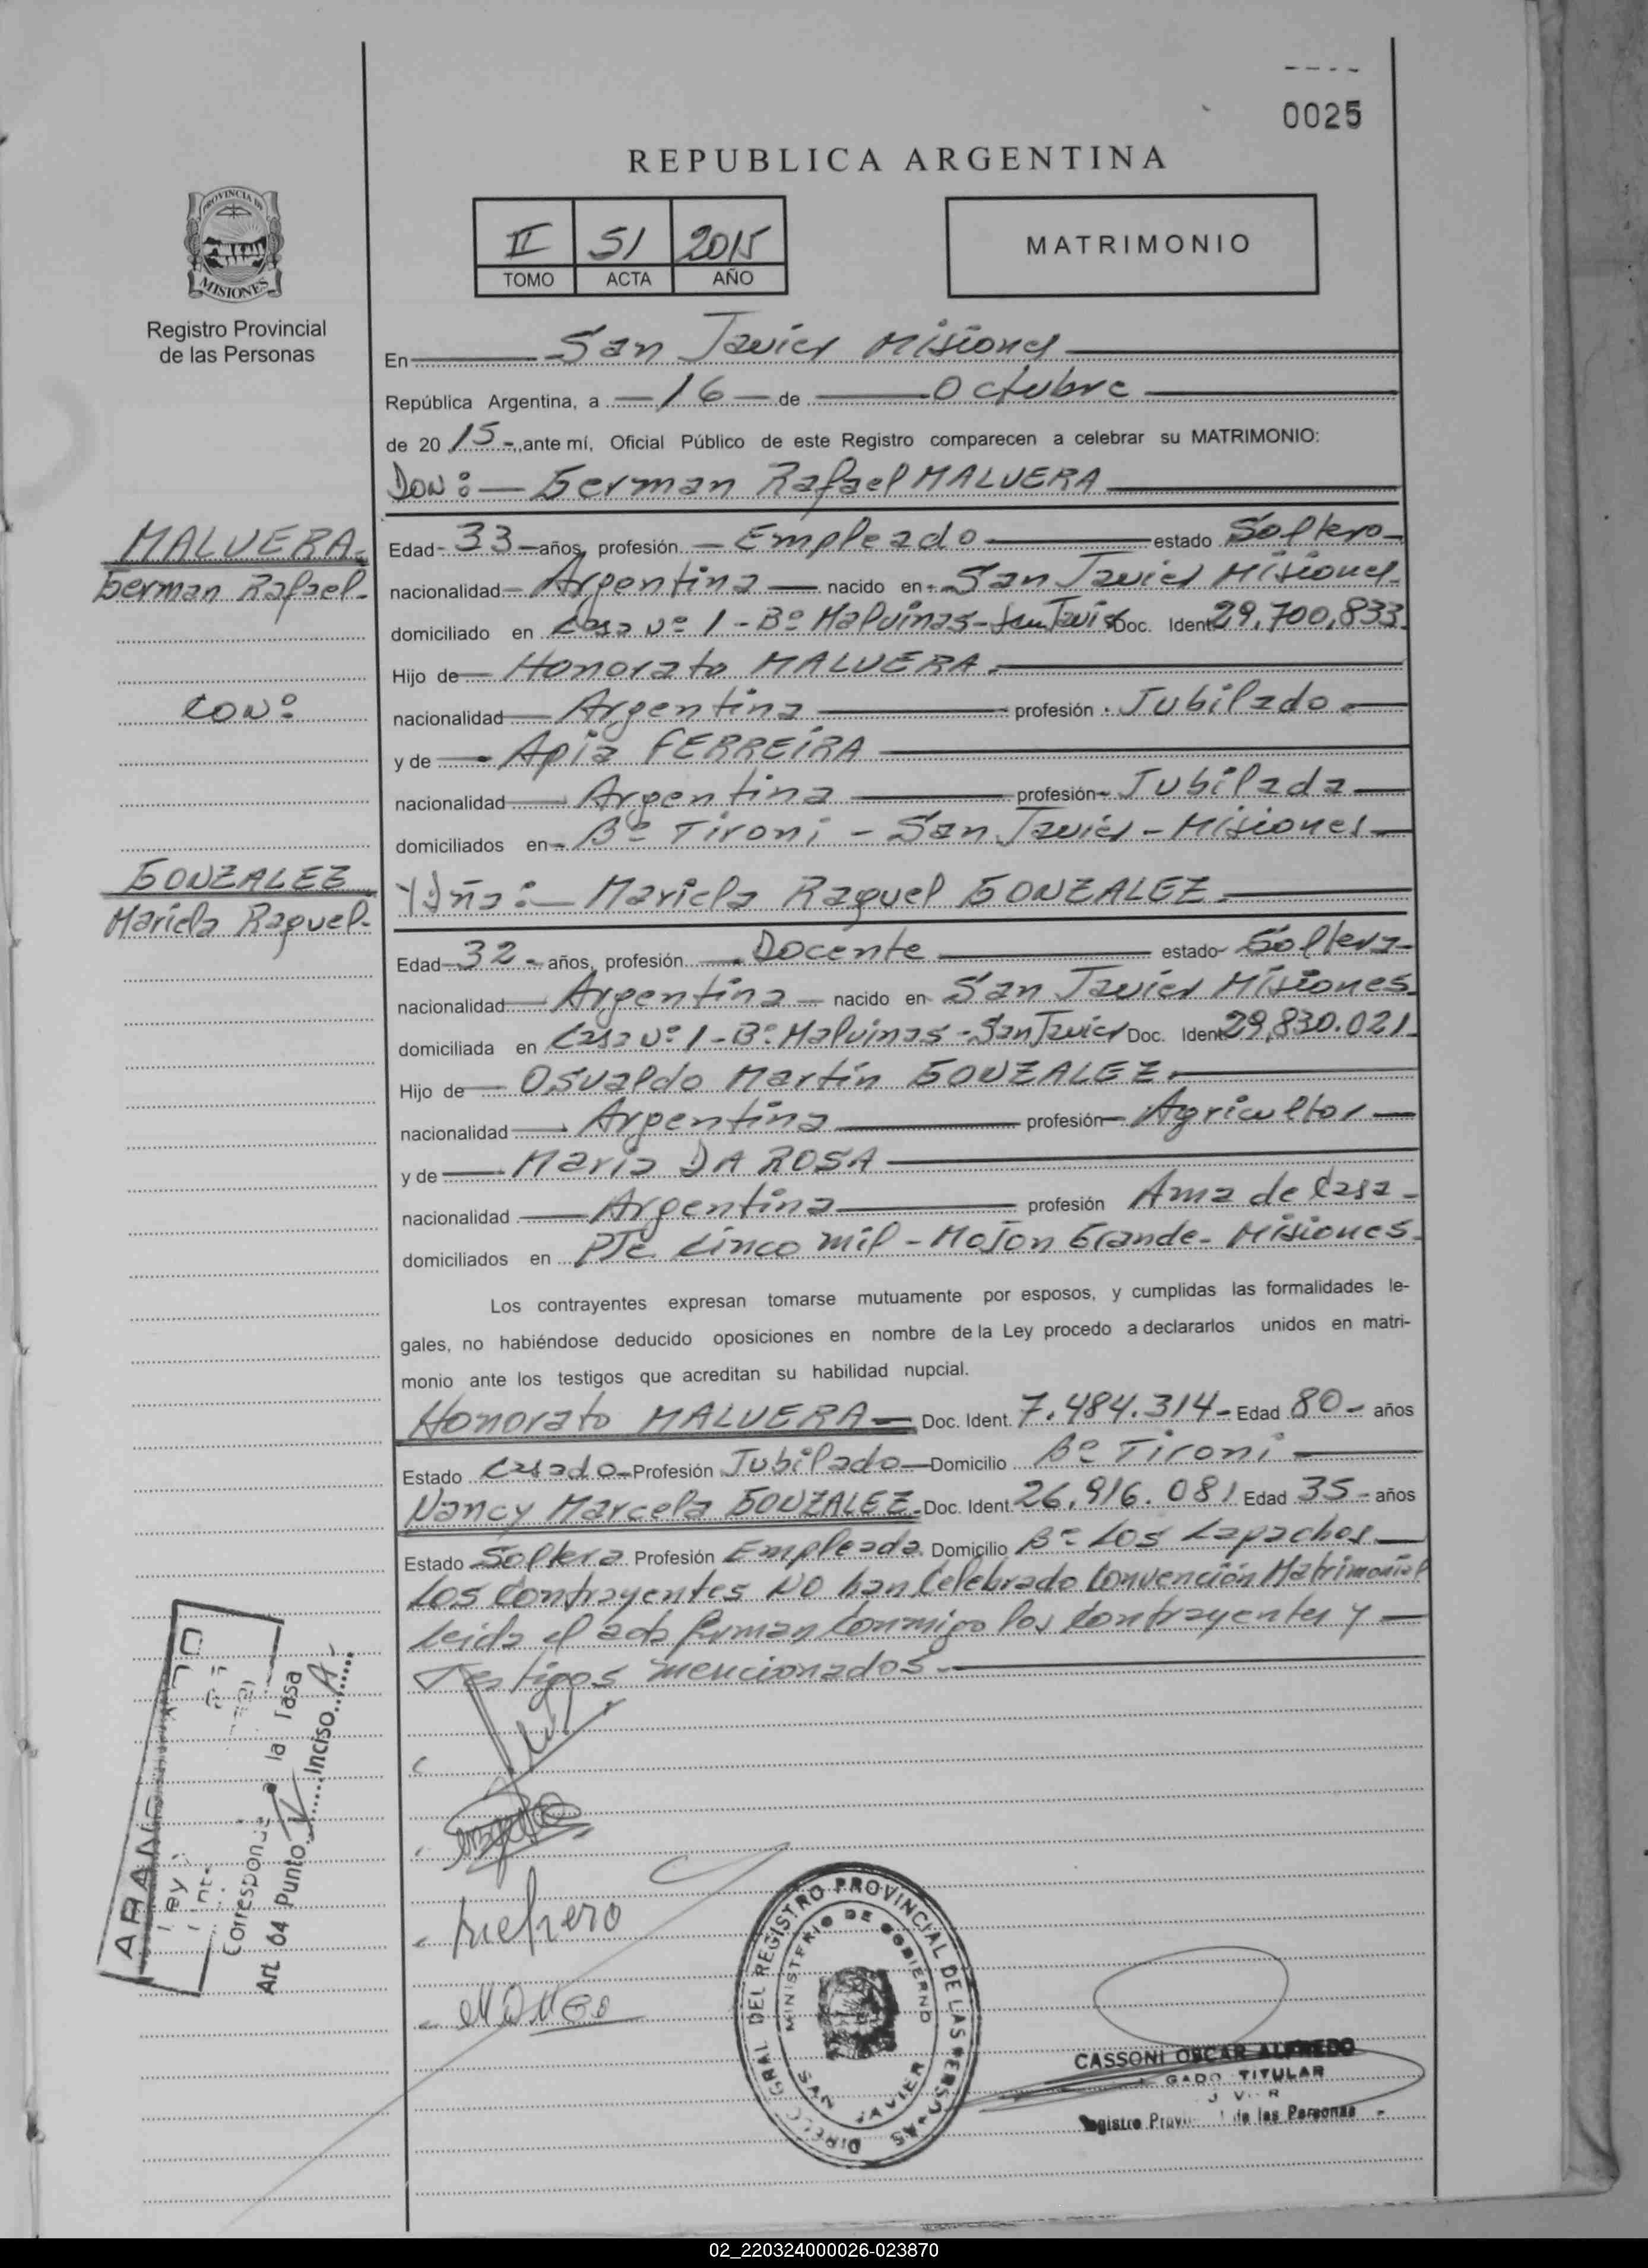 0025
REPUBLICA ARGENTINA
PROVINCIA DE
MISIONES
Registro Provincial
de las Personas
II 51 2015
TOMO ACTA AÑO
MATRIMONIO
En San Javier Misiones
República Argentina, a 16 de Octubre
de 20 15 ante mí, Oficial Público de este Registro comparecen a celebrar su MATRIMONIO:
Don: German Rafael MALVERA
MALVERA
German Rafael
con:
GONZALEZ
Mariela Raquel
Edad 33 años, profesión Empleado estado Soltero
nacionalidad Argentina nacido en San Javier Misiones
domiciliado en Casa Nº 1 - Bº Malvinas - San Javier Doc. Ident 29.700.833
Hijo de Honorato MALVERA
nacionalidad Argentina profesión Jubilado
y de Apia FERREIRA
nacionalidad Argentina profesión Jubilada
domiciliados en Bº Tironi - San Javier - Misiones
Y Dña: Mariela Raquel GONZALEZ
Edad 32 años, profesión Docente estado Soltera
nacionalidad Argentina nacido en San Javier Misiones
domiciliada en Casa Nº 1 - Bº Malvinas - San Javier Doc. Ident 29.830.021
Hijo de Osvaldo Martín GONZALEZ
nacionalidad Argentina profesión Agricultor
y de Maria DA ROSA
nacionalidad Argentina profesión Ama de Casa
domiciliados en Pje Cinco mil - Mojon Grande - Misiones
Los contrayentes expresan tomarse mutuamente por esposos, y cumplidas las formalidades le-
gales, no habiéndose deducido oposiciones en nombre de la Ley procedo a declararlos unidos en matri-
monio ante los testigos que acreditan su habilidad nupcial.
Honorato MALVERA Doc. Ident. 7.484.314 Edad 80 años
Estado Casado Profesión Jubilado Domicilio Bº Tironi
Nancy Marcela GONZALEZ Doc. Ident. 26.916.081 Edad 35 años
Estado Soltera Profesión Empleada Domicilio Bº Los Lapachos
Los Contrayentes NO han Celebrado Convención Matrimonial
leída el acta firman Conmigo los Contrayentes y
Testigos mencionados
Corresponde la Tasa
Art. 64 Punto V Inciso A
DIREC. GRAL DEL REGISTRO PROVINCIAL DE LAS PERSONAS
MINISTERIO DE GOBIERNO
SAN JAVIER
CASSONI OSCAR ALFREDO
TITULAR
de las Personas
02_220324000026-023870